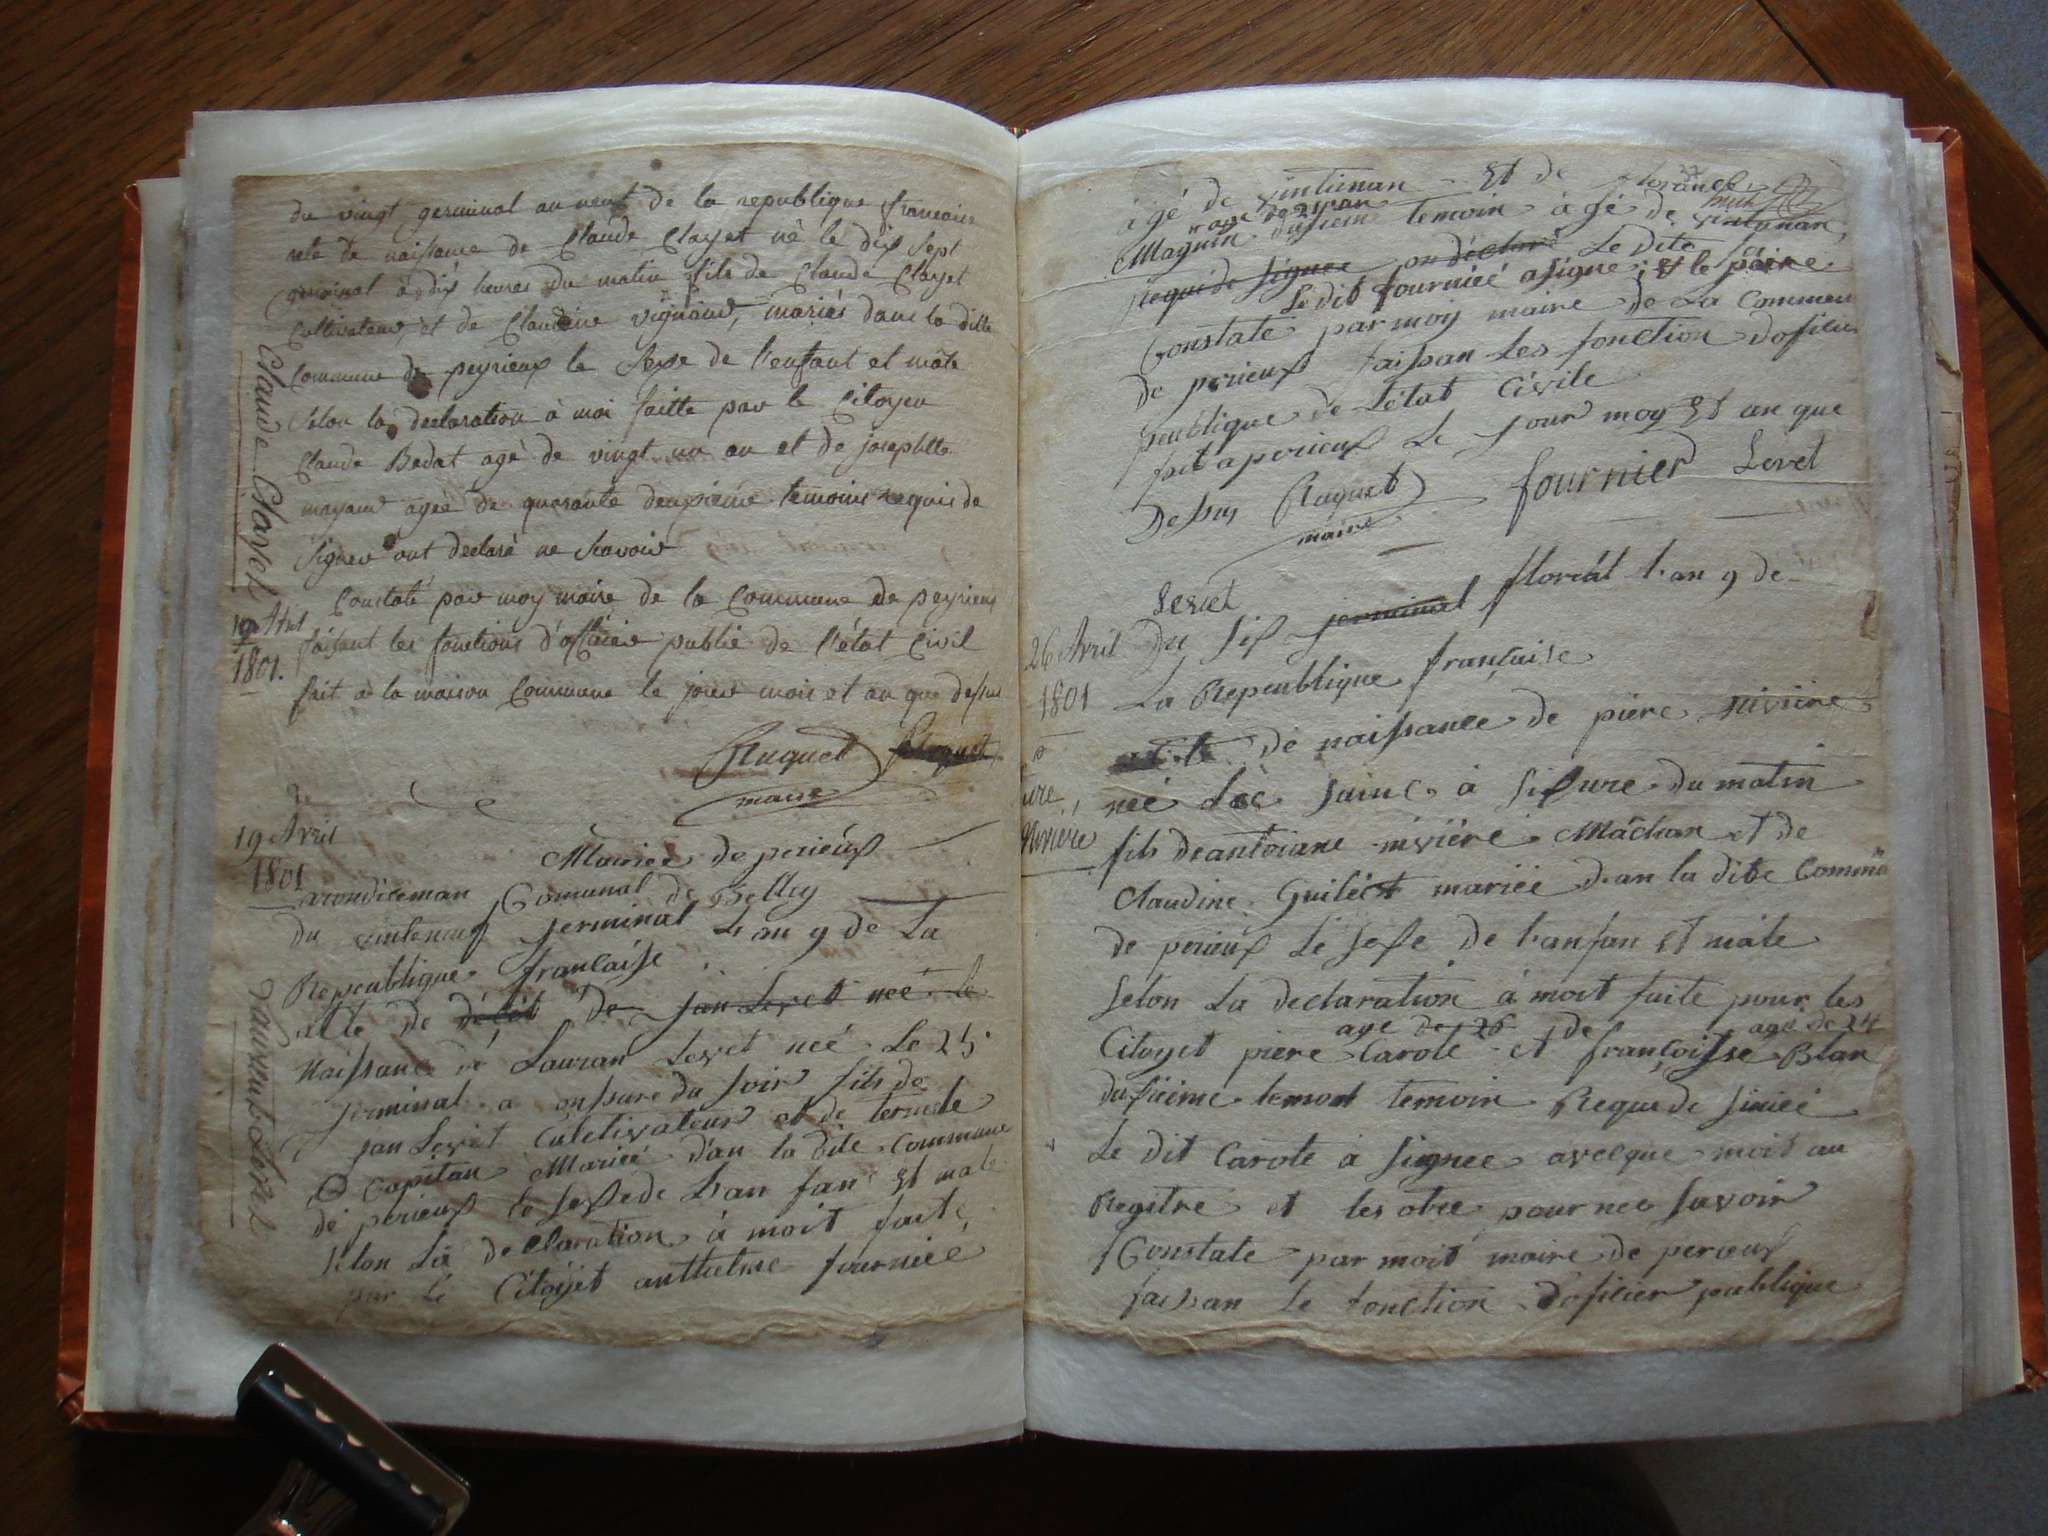 du vingt germinal an neuf de la republique francaise
acte de naissance de Claude Clayet né le dix sept
germinal à dix heures du matin fils de Claude Clayet
Cultivateur, et de Claudine vignaud, mariés dans la ditte
Commune de peyrieux le Sexe de l'enfant et mâle
Selon la declaration à moi faitte par le Citoyen
Claude Bedat agé de vingt un an et de josephtte
agée de quarante deuxieme temoins requis de
Signer ont declaré ne Scavoir
Constaté par moy maire de la Commune de peyrieux
faisant les fonctions d'officier public de l'état Civil
fait à la maison Commune le jour mois et an que dessus
maire
Claude Clayet
10 Avril
1801.
19 Avril
1801
Mairiee de perieux
arondiceman Comunal de Belley
du vinteneuf jerminal L'an 9 de La
Republique francaise
acte de décét de jan Levet neé le
Naissance de Lauran Levet neé Le 25
jerminal a onsure du soir fils de
jan Levet Cultivateur et de
Capitan Marieé dan la dite commune
de perieux le sexe de l'an fan Et male
selon La declaration à moit faite
par Le Citoyet anthelme fournieé
Laurent Levet
agé de vintienan Et de
Magnin dusiem temoin agé de vintunan
age de 21 nan
requi de signee on déclaré Le dite
Le dit fournieé a signe Et le père
Constate par moy maire de La Commeu
de perieux faisan Les fonction d'ofisier
peublique de L'état Civile
fait a perieux Le jour moy Et an que
Desus
maire
fournier Levet
Levet
26 Avril
1801
Du six jerminal floréal l'an 9 de
La Republique française
acte de naissance de piere riviere
neé à sixure du matin
fils de antoiane riviere Mâchan et de
Claudine Guiléct mariée dan la dite Commune
de perieux Le sexe de l'anfan Et mâle
Selon La declaration à moit faite pour les
Citoyet piere Carote age de 26 et de françoisse Blan agé de 24
dusieme temoin Reque de sinieé
Le dit Carote à signee avecque moit au
Regitre et les otre pour neo savoir
Constate par moit maire de perieux
faisan Le fonction d'ofisier publique
Rivière